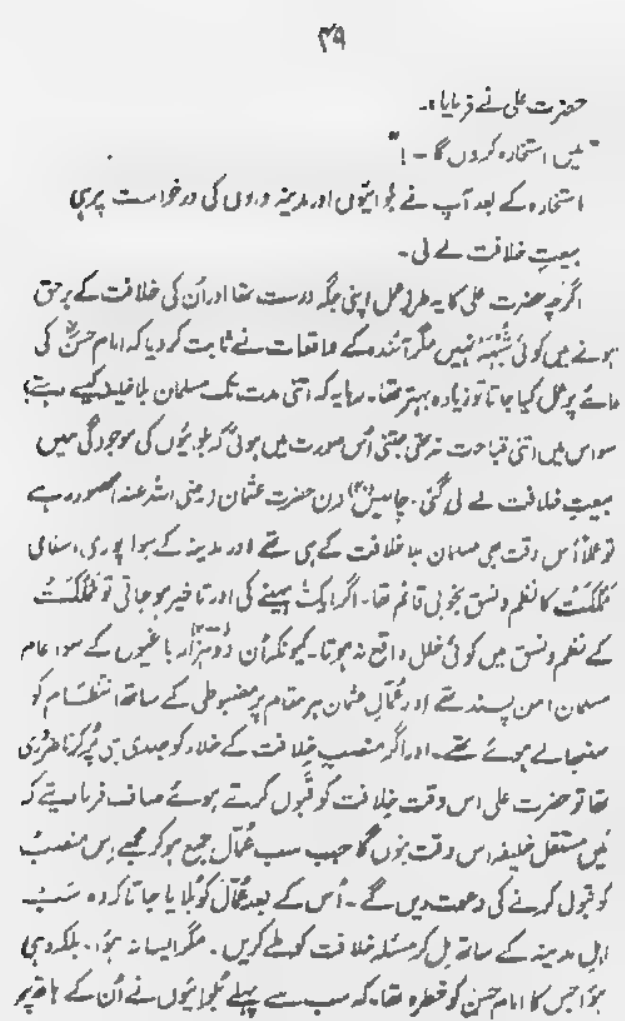 ۴۹
حضرت علی نے فرمایا:۔
"میں استخارہ کروں گا۔!"
استخارہ کے بعد آپ نے بلوائیوں اور مدینہ والوں کی درخواست پر ہی
بیعتِ خلافت لے لی۔
اگرچہ حضرت علی کا یہ طرزِ عمل اپنی جگہ درست تھا اور اُن کی خلافت کے برحق
ہونے میں کوئی شُبہہ نہیں مگر آئندہ کے واقعات نے ثابت کر دیا کہ امام حسنؓ کی
رائے پر عمل کیا جاتا تو زیادہ بہتر تھا۔ رہا یہ کہ اتنی مدت تک مسلمان بلا خلیفہ کیسے رہتے؟
سو اس میں اتنی قباحت نہ تھی جتنی اُس صورت میں ہوئی کہ بلوائیوں کی موجودگی میں
بیعتِ خلافت لے لی گئی۔ چالیس (۴۰) دن حضرت عثمان (رضی اللہ عنہ) محصور رہے
تو عملاً اُس وقت بھی مسلمان بلا خلافت کے ہی تھے اور مدینہ کے سوا پوری اسلامی
مَمْلَکَت کا نظم و نسق بخوبی قائم تھا۔ اگر ایک مہینے کی اور تاخیر ہو جاتی تو مَمْلَکَت
کے نظم و نسق میں کوئی خلل واقع نہ ہوتا۔ کیونکہ اُن دُو ہزار باغیوں کے سوا عام
مسلمان امن پسند تھے اور عُمّالِ عثمان ہر مقام پر مضبوطی کے ساتھ انتظام کو
سنبھالے ہوئے تھے۔ اور اگر منصبِ خلافت کے خلاء کو جلدی ہی پُر کرنا ضروری
تھا تو حضرت علی اس وقت خلافت کو قبول کرتے ہوئے صاف فرما دیتے کہ
مَیں مستقل خلیفہ اس وقت بنوں گا جب سب عُمّال جمع ہو کر مجھے اِس منصب
کو قبول کرنے کی دعوت دیں گے۔ اُس کے بعد عُمّال کو بُلایا جاتا کہ وہ سب
اہلِ مدینہ کے ساتھ مِل کر مسئلہ خلافت کو طے کریں۔ مگر ایسا نہ ہؤا۔ بلکہ وہی
ہؤا جس کا امام حسن کو خطرہ تھا۔ کہ سب سے پہلے بلوائیوں نے اُن کے ہاتھ پر